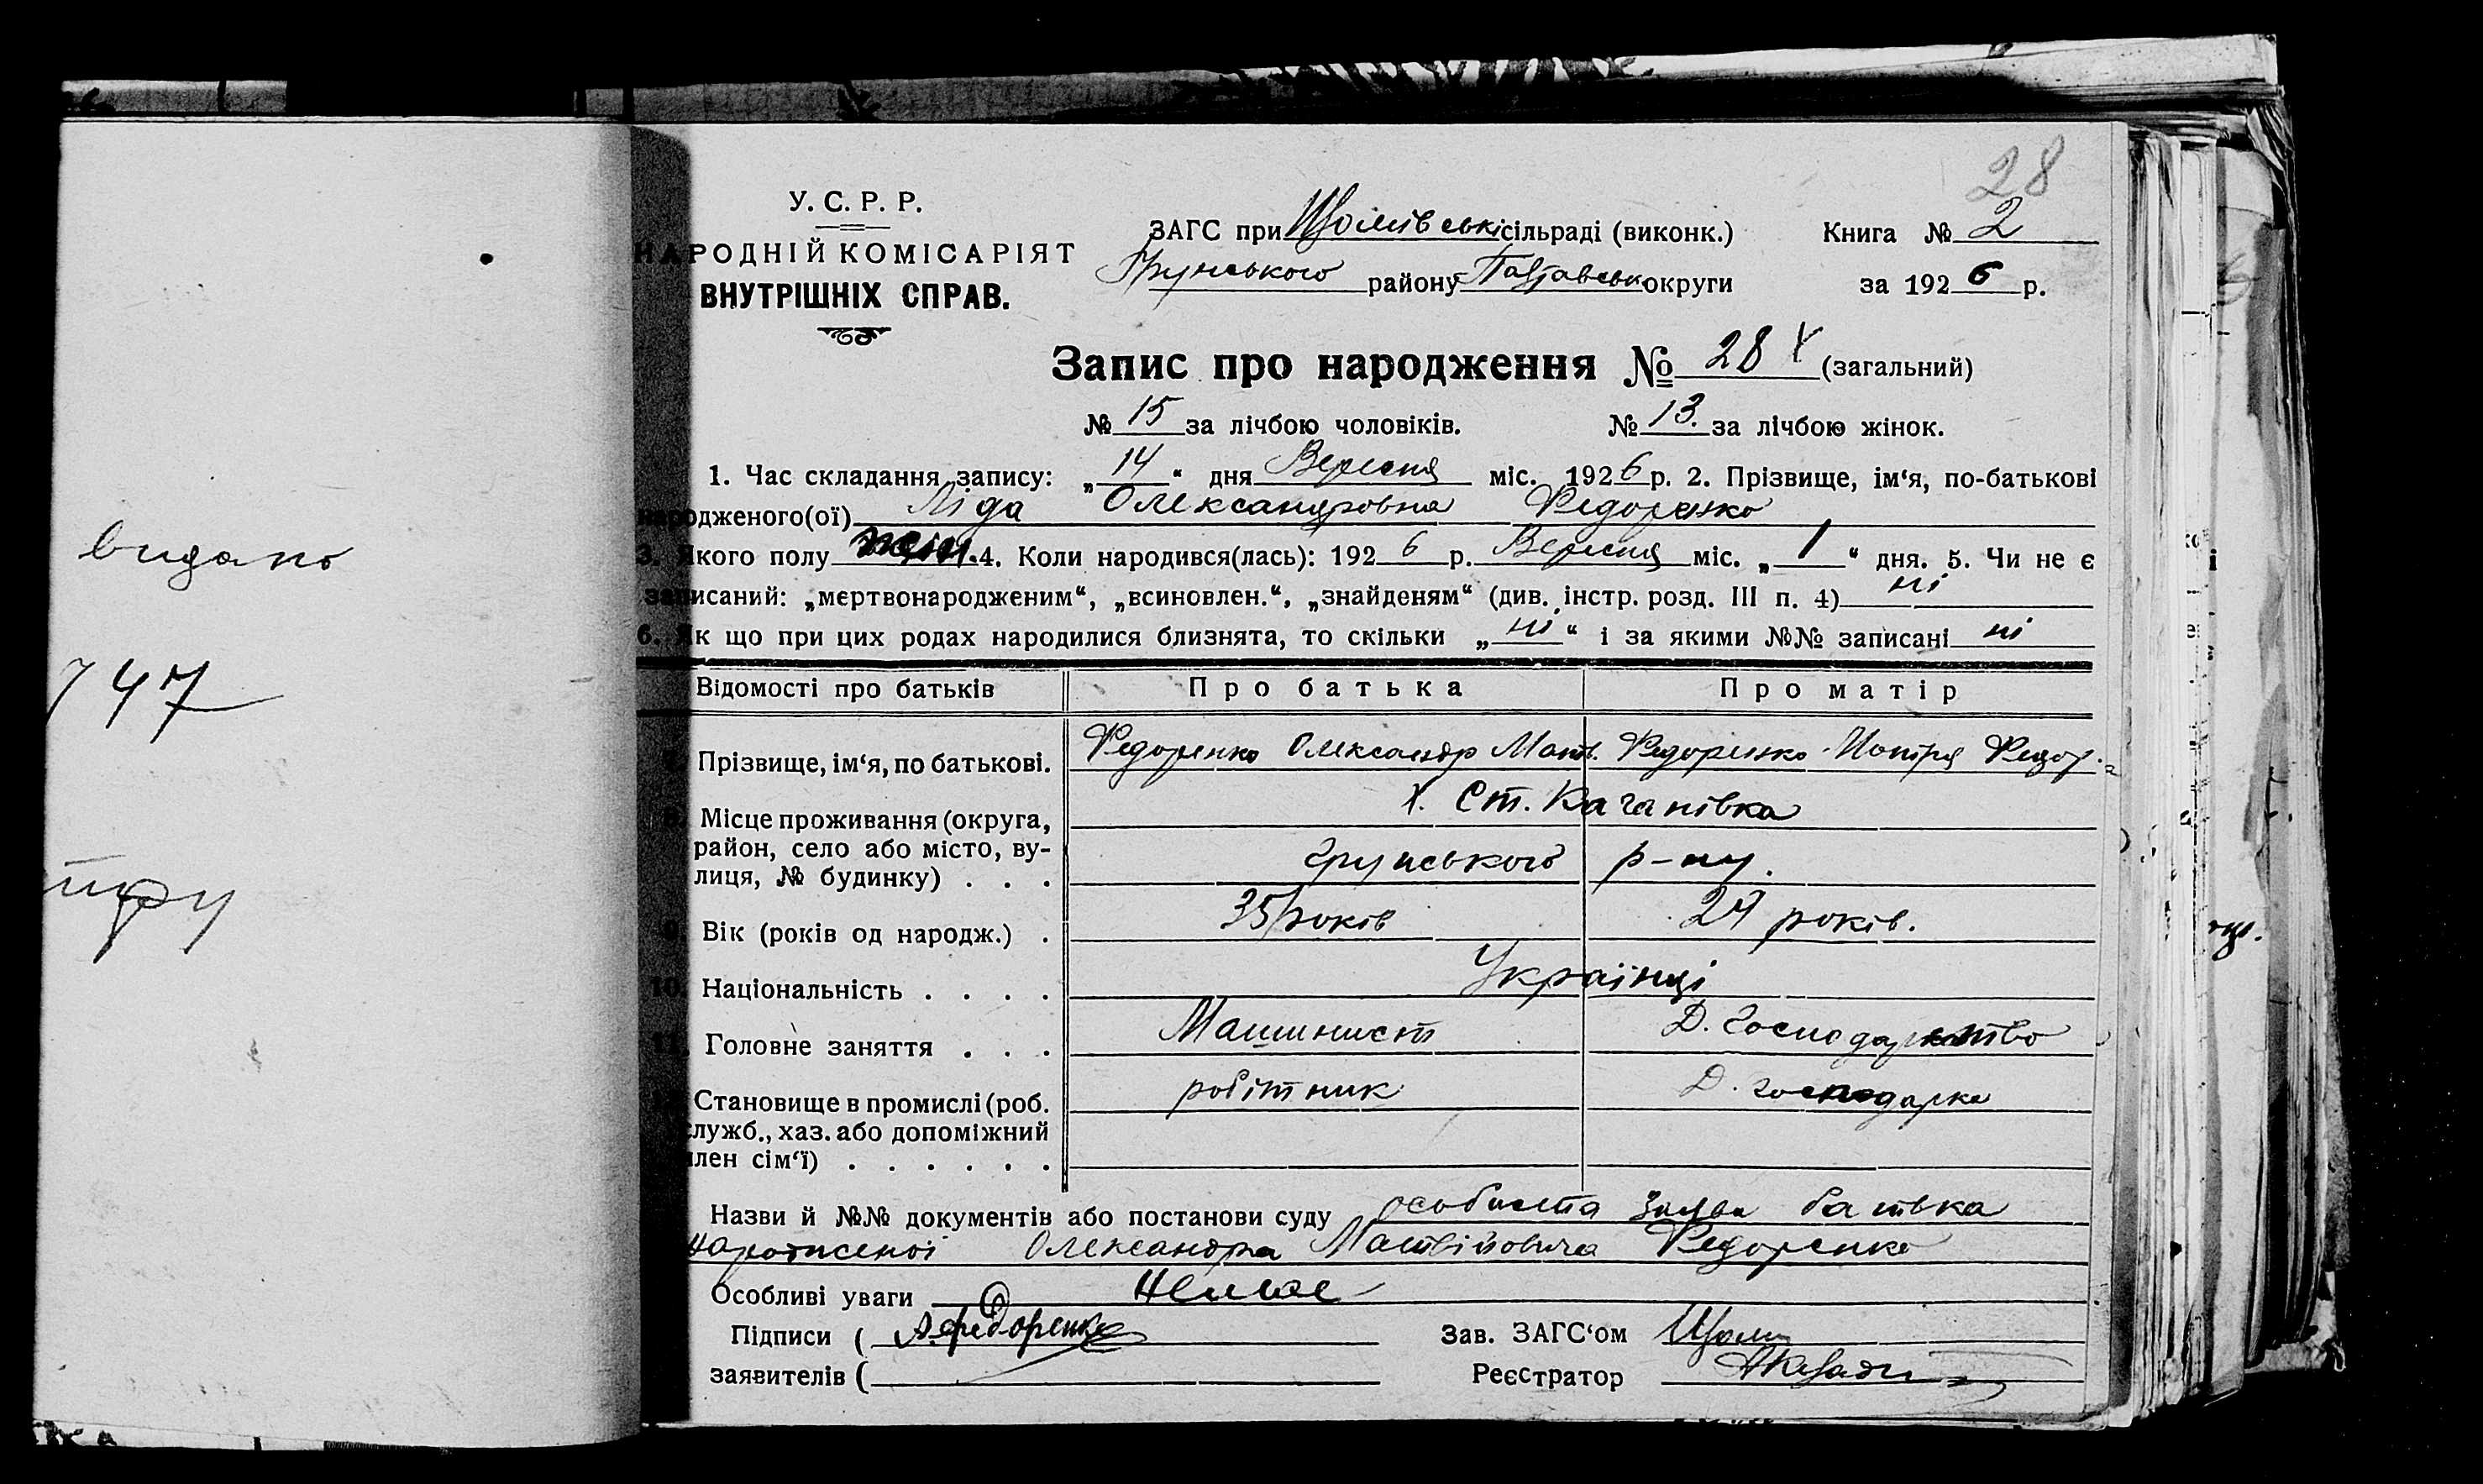 видано
747
28
У. С. Р. Р.
НАРОДНІЙ КОМІСАРІЯТ
ВНУТРІШНІХ СПРАВ.
ЗАГС при сільраді (виконк.) Книга № 2
Грунського району Полтавськ округи за 1926 р.
Запис про народження № 28 (загальний)
№ 15 за лічбою чоловіків. № 13. за лічбою жінок.
1. Час складання запису: „14“ дня Вересня міс. 1926 р. 2. Прізвище, ім‘я, по-батькові
народженого(ої) Ліда Олександровна Федоренко
3. Якого полу жін. 4. Коли народився(лась): 1926 р. Вересня міс. „1“ дня. 5. Чи не є
записаний: „мертвонародженим“, „всиновлен.“, „знайденям“ (див. інстр. розд. III п. 4) ні
6. Як що при цих родах народилися близнята, то скільки „ні“ і за якими №№ записані ні
Відомості про батьків Про батька Про матір
Прізвище, ім‘я, по батькові. Федоренко Олександр Матв. Федоренко Мотря Федор.
Місце проживання (округа, х. Ст. Качанівка
район, село або місто, ву-
лиця, № будинку) . . . Грунського р-ну.
9. Вік (років од народж.) . 35 років 29 років.
10. Національність . . . . Українці
11. Головне заняття . . . Машинист Д. господарство
Становище в промислі (роб. робітник Д. господарка
служб., хаз. або допоміжний
член сім‘ї) . . . . . .
Назви й №№ документів або постанови суду особиста заява батька
народженої Олександра Матвійовича Федоренко
Особливі уваги Немає
Підписи ( А. Федоренко Зав. ЗАГС‘ом
заявителів ( Реєстратор